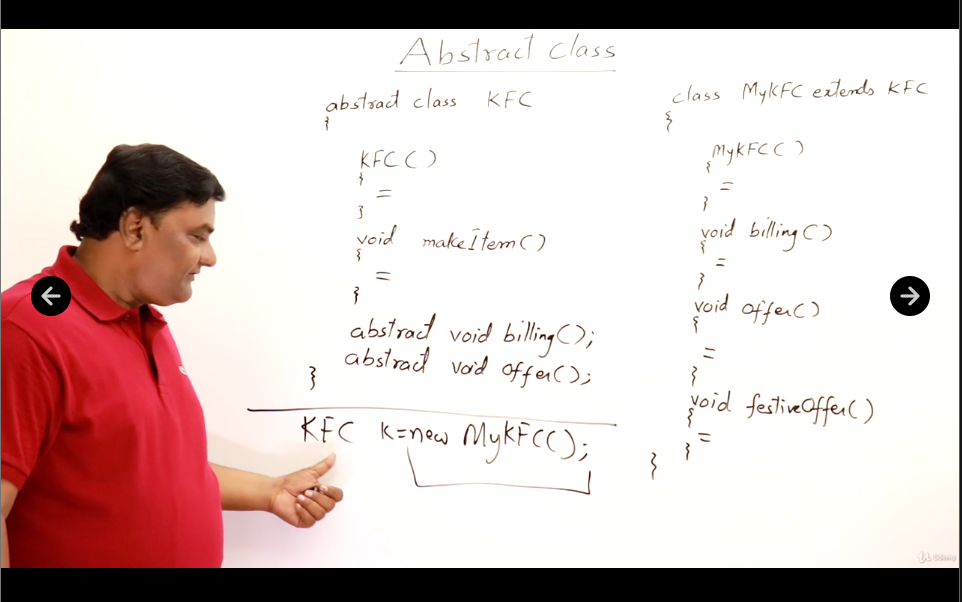 Abstract class
abstract class KFC
{
KFC()
{
=
}
void makeItem()
{
=
}
abstract void billing();
abstract void offer();
}
KFC k=new MyKFC();
class MyKFC extends KFC
{
MyKFC()
{
=
}
void billing()
{
=
}
void offer()
{
=
}
void festiveOffer()
{
=
}
}
Udemy